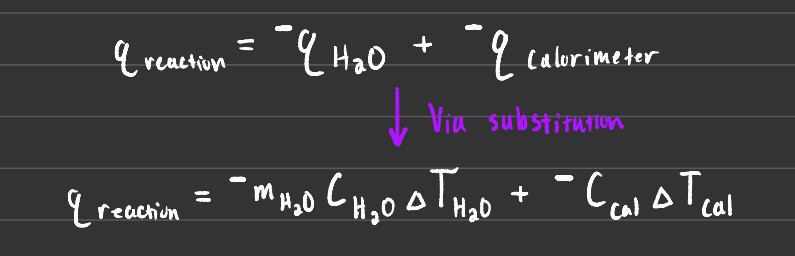 q reaction = -q H₂O + -q calorimeter
Via substitution
q reaction = -m H₂O C H₂O ΔT H₂O + -C cal ΔT cal